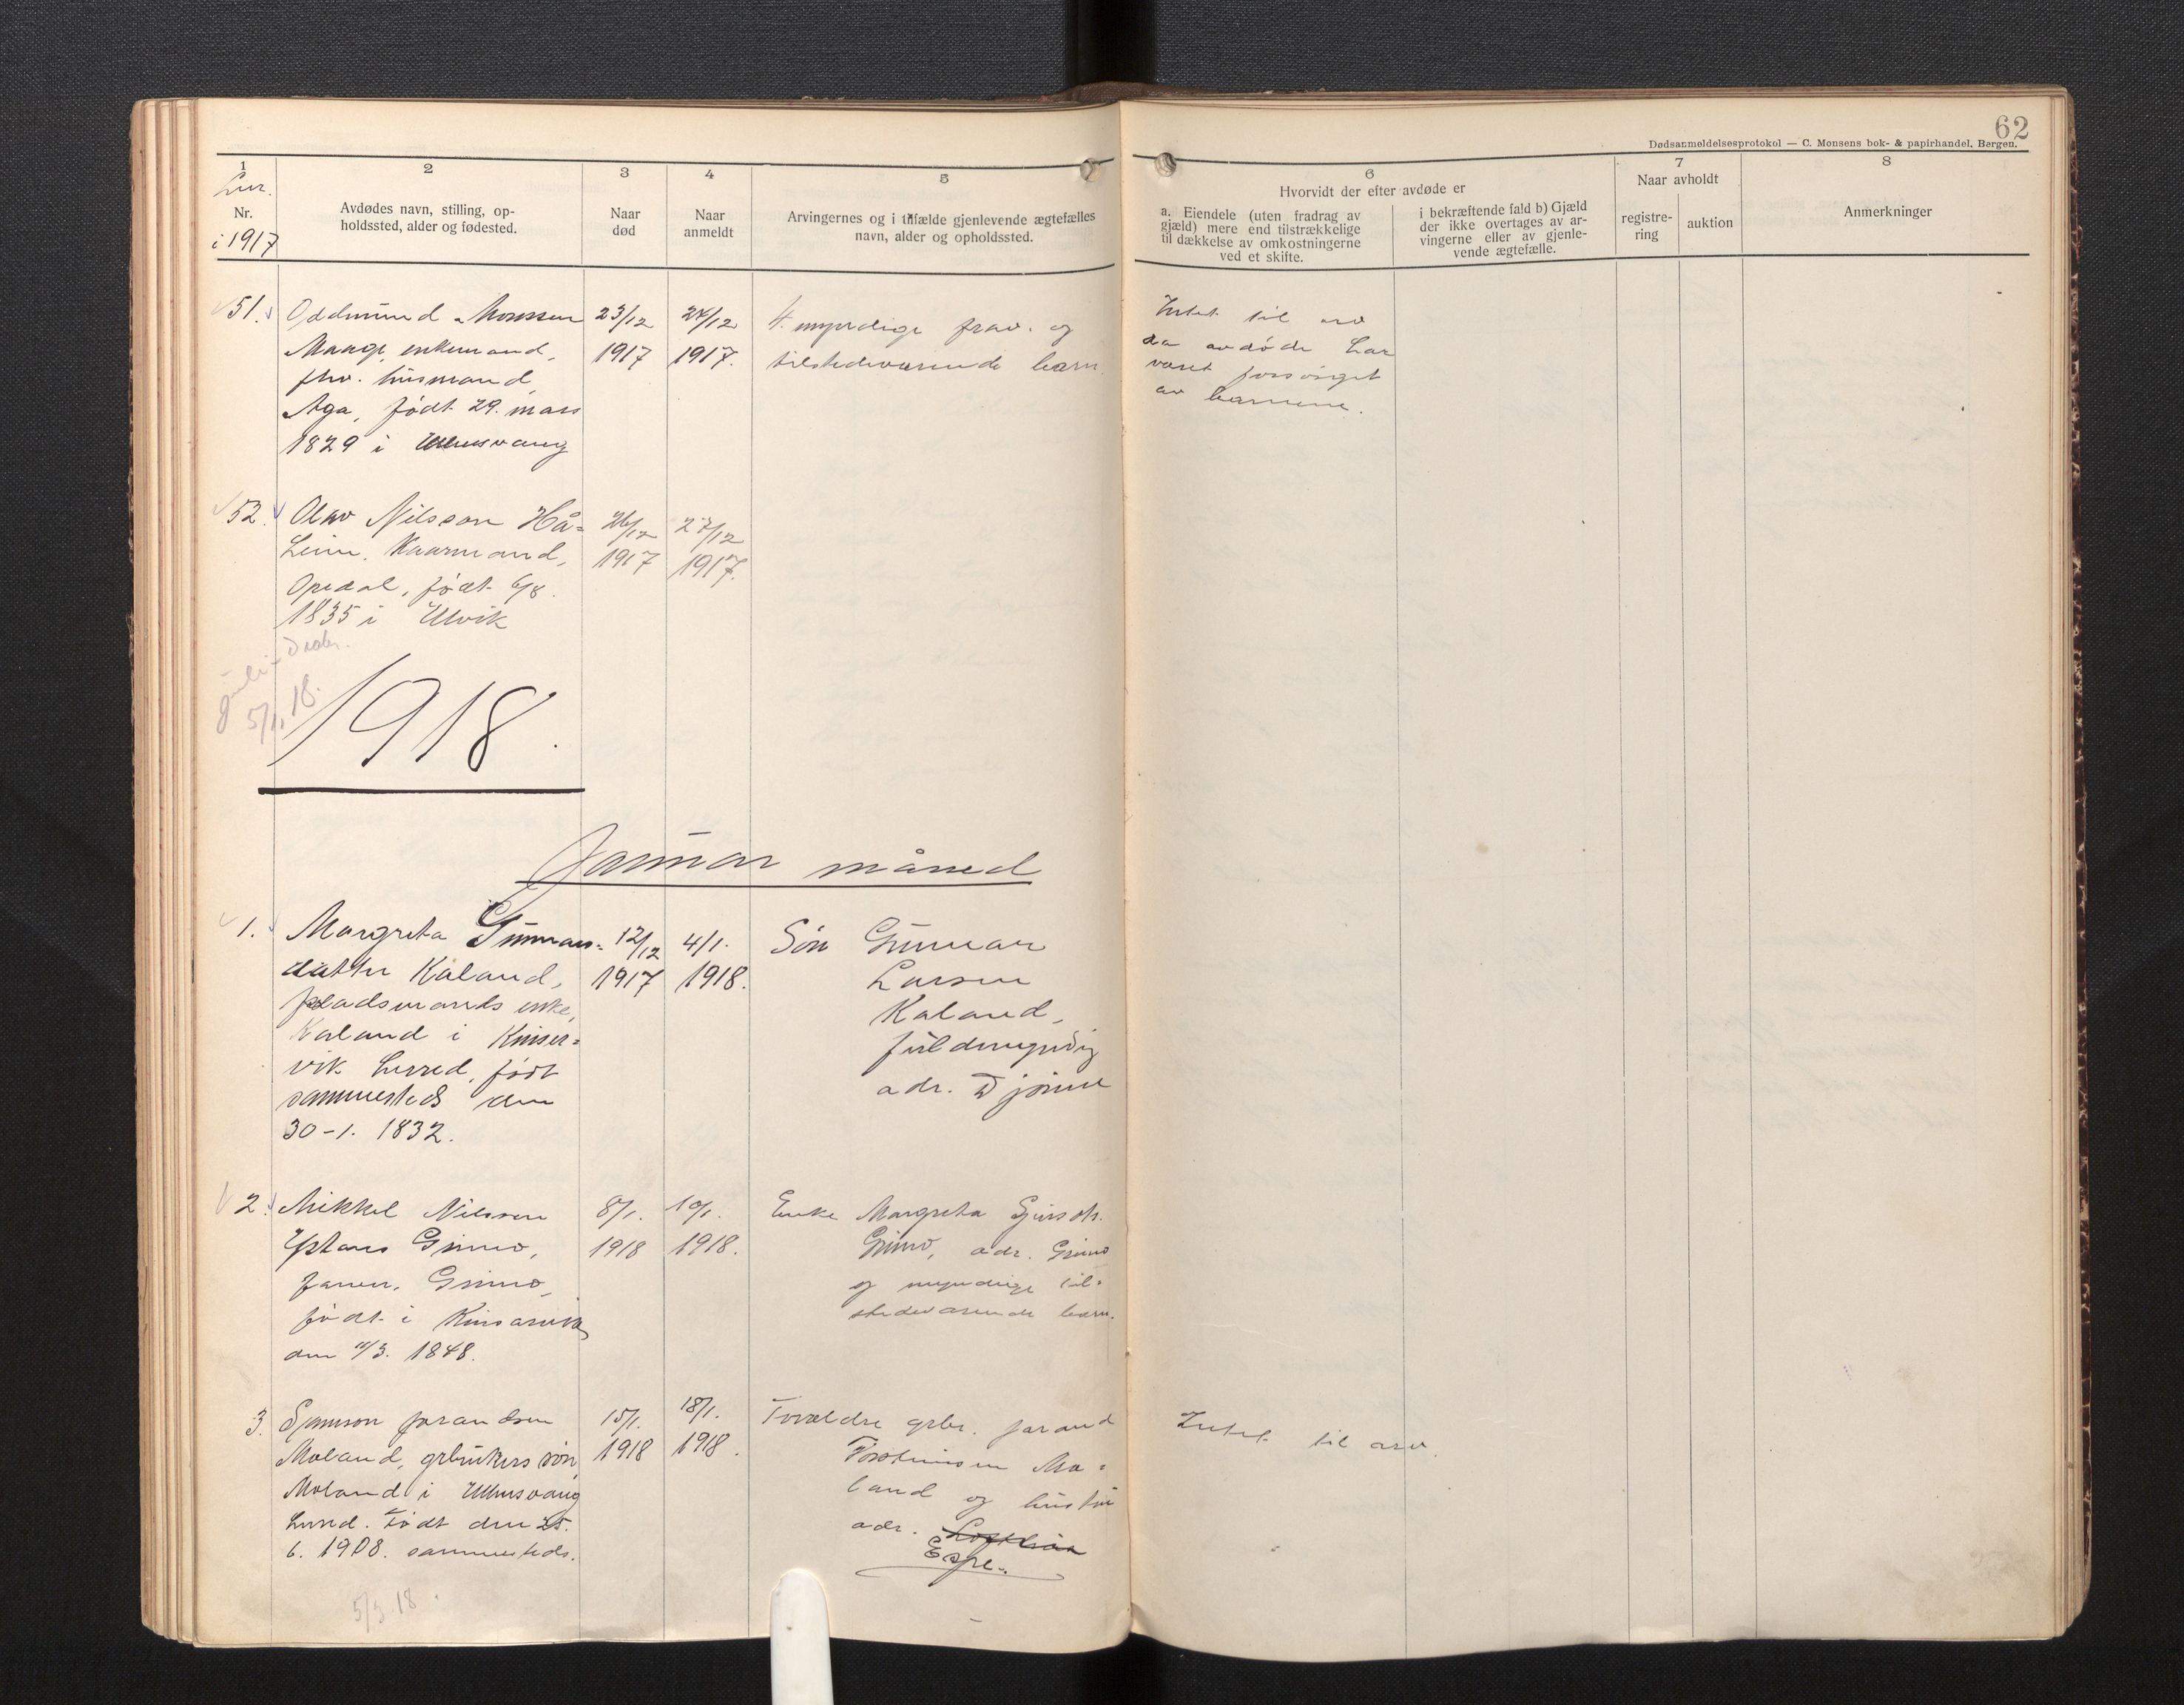 62
Dødsanmeldelsesprotokol — C. Monsens bok- & papirhandel, Bergen.
1
Nr.
i 1917
2
Avdødes navn, stilling, op-
holdssted, alder og fødested.
3
Naar
død
4
Naar
anmeldt
5
Arvingernes og i tilfælde gjenlevende ægtefælles
navn, alder og opholdssted.
6
Hvorvidt der efter avdøde er
a. Eiendele (uten fradrag av
gjæld) mere end tilstrækkelige
til dækkelse av omkostningerne
ved et skifte.
i bekræftende fald b) Gjæld
der ikke overtages av ar-
vingerne eller av gjenle-
vende ægtefælle.
7
Naar avholdt
registre-
ring
auktion
8
Anmerkninger
51.
Oddmund Monssen
Maage, enkemand,
fhv. husmand,
Aga, født 29. mars
1829 i Ullensvang
23/12
1917
24/12
1917.
4 myndige frav. og
tilstedeværende barn
Intet til arv
da avdøde har
været forsørget
av barnene.
52.
Olav Nilsson Hå-
heim, Kaarmand,
Opedal, født 6/8.
1835 i Ulvik
26/12
1917
27/12
1917.
5/1. 18.
1918.
Januar måned
1.
Margreta Gunnars-
datter Kaland,
pladsmands enke,
Kaland i Kinser-
vik herred, født
sammesteds den
30-1. 1832.
12/12
1917
4/1.
1918.
Søn Gunnar
Larsen
Kaland,
fuldmyndig
adr. Djønne
2.
Mikkel Nilssen
Ystanes Grimo,
farver, Grimo,
født i Kinsarvik
den 11/3. 1848.
8/1.
1918
10/1.
1918.
Enke Margreta Sjursdtr.
Grimo, adr. Grimo
og myndige til-
stedeværende barn.
3.
Sjamson Jorandsen
Moland, grbrukers søn,
Moland i Ullensvang
herred. Født den 25.
6. 1908. sammesteds.
15/1.
1918
18/1.
1918.
Forældre grbr. Jorand
Torsteinssen Mo-
land og hustru
adr. Lofthus
Espe.
Intet til arv.
5/3 18.